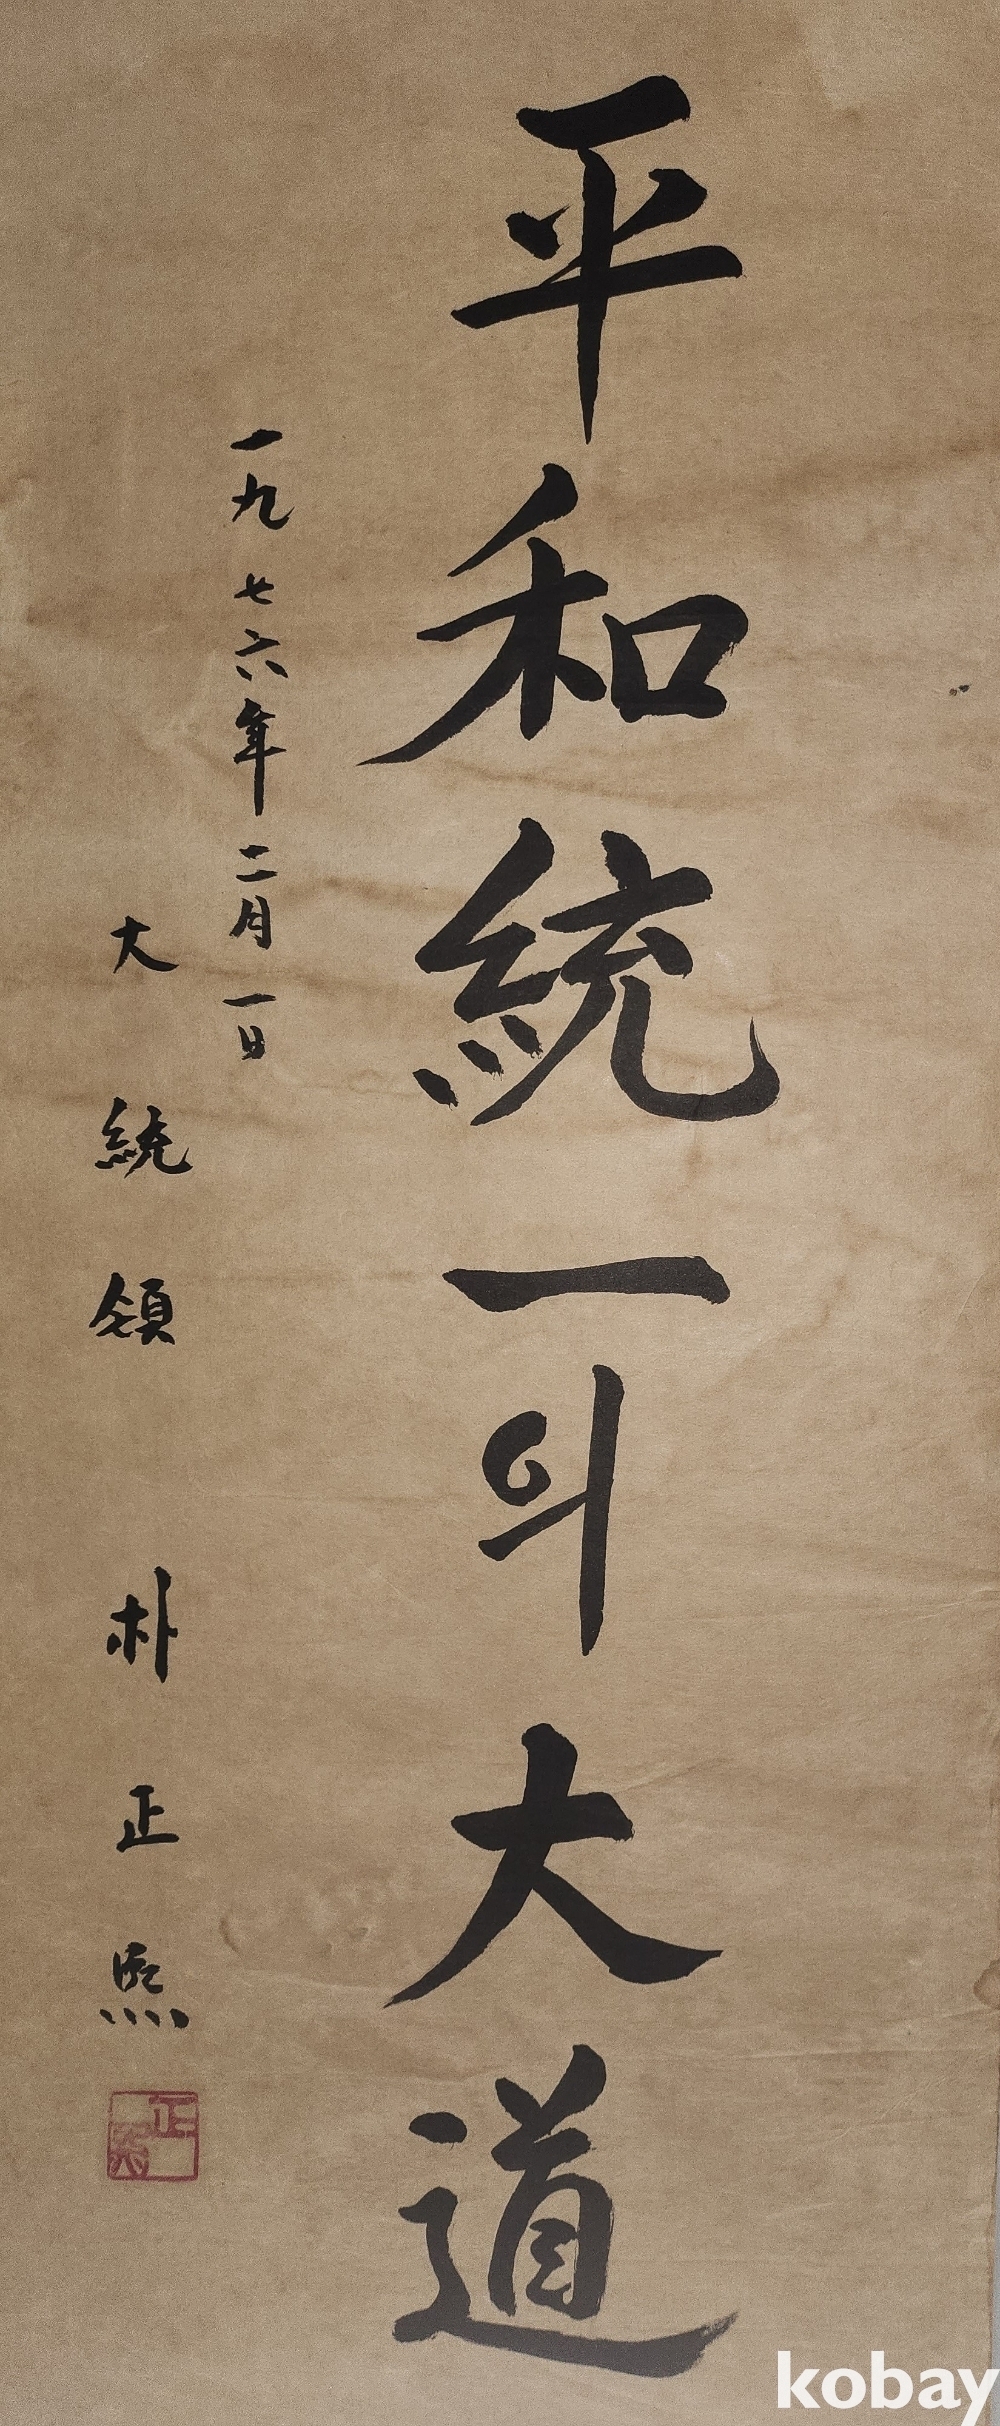 平和統一의大道
一九七六年二月一日
大統領 朴正熙
正熙
kobay